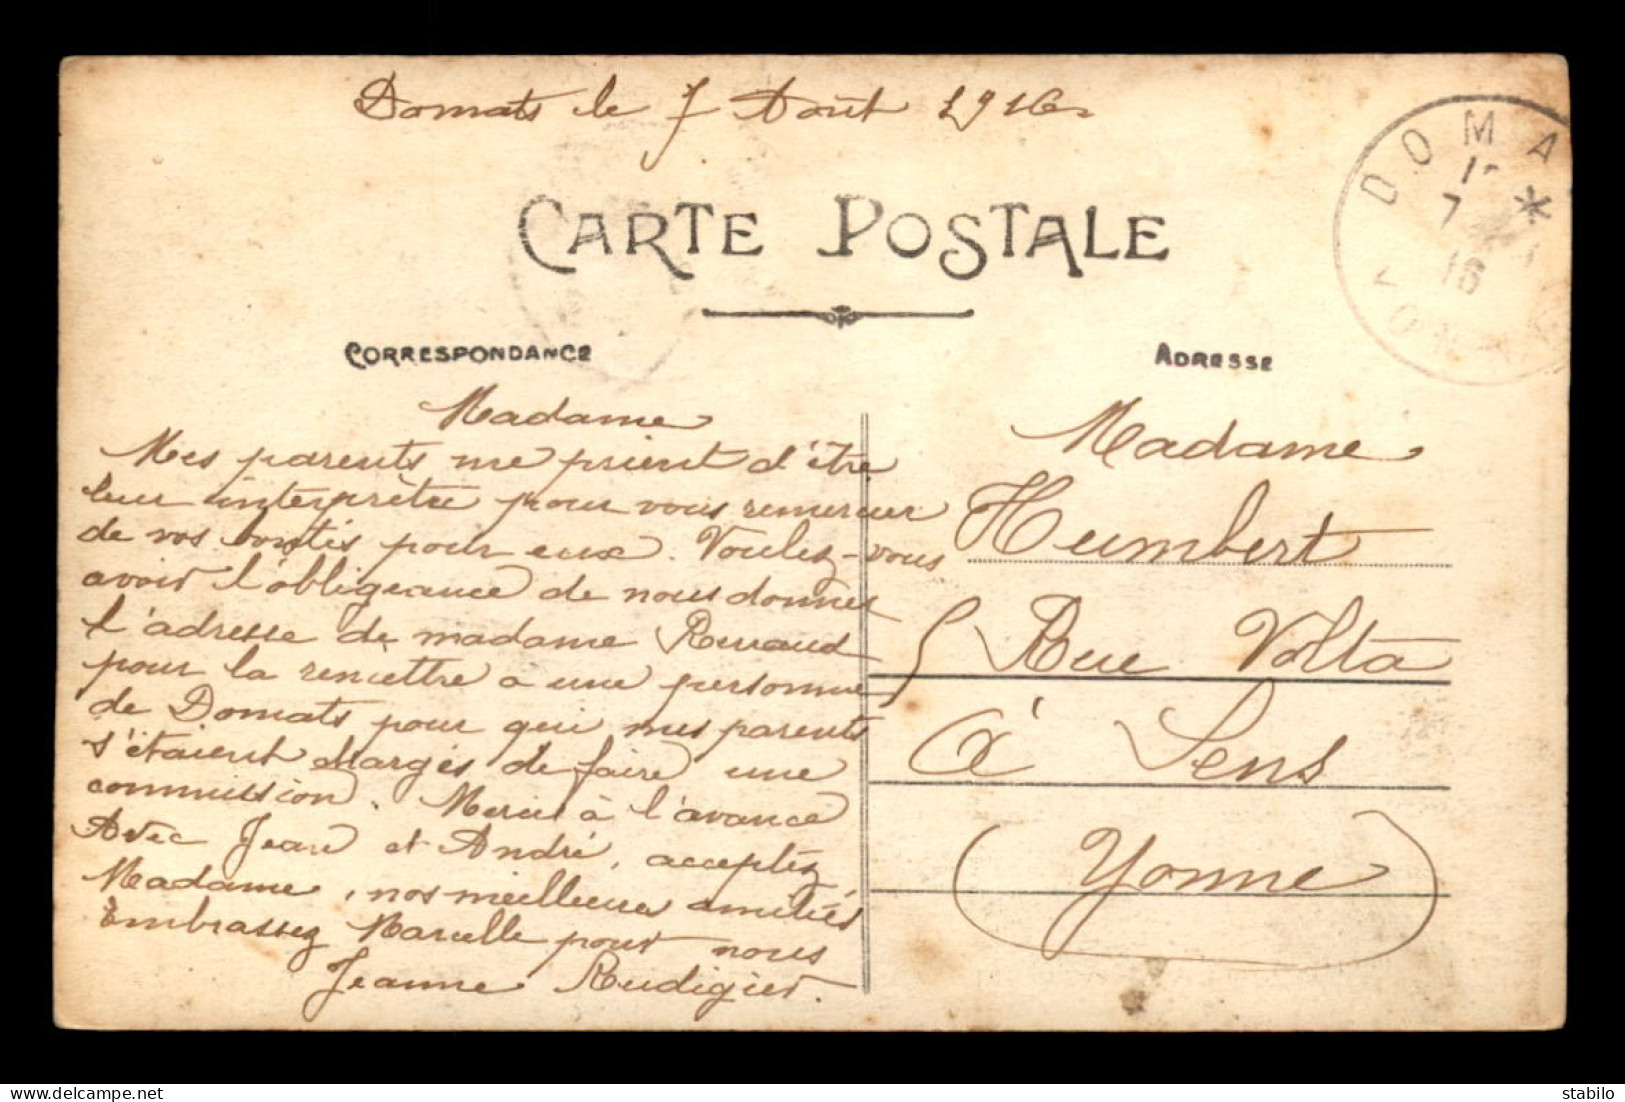 Domats le 7 Août 1916
DOMA
7
16
YONNE
CARTE POSTALE
CORRESPONDANCE
Madame
Mes parents me prient d'être
leur interprète pour vous remercier
de vos bontés pour eux. Voulez-vous
avoir l'obligeance de nous donner
l'adresse de madame Renaud
pour la remettre a une personne
de Domats pour qui mes parents
s'étaient chargés de faire une
commission. Merci à l'avance
Avec Jean et André, acceptez
Madame, nos meilleures amitiés
Embrassez Marcelle pour nous
Jeanne Rudigier.
ADRESSE
Madame
Humbert
5 Rue Volta
à Sens
(Yonne)
stabilo